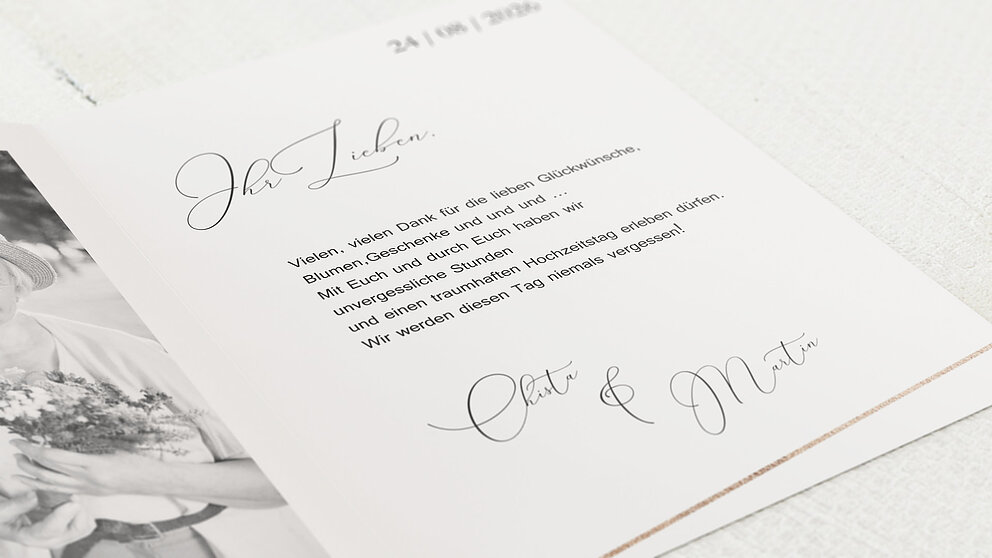 24 | 08 | 2026
Ihr Lieben,
Vielen, vielen Dank für die lieben Glückwünsche,
Blumen,Geschenke und und und ...
Mit Euch und durch Euch haben wir
unvergessliche Stunden
und einen traumhaften Hochzeitstag erleben dürfen.
Wir werden diesen Tag niemals vergessen!
Chista & Martin